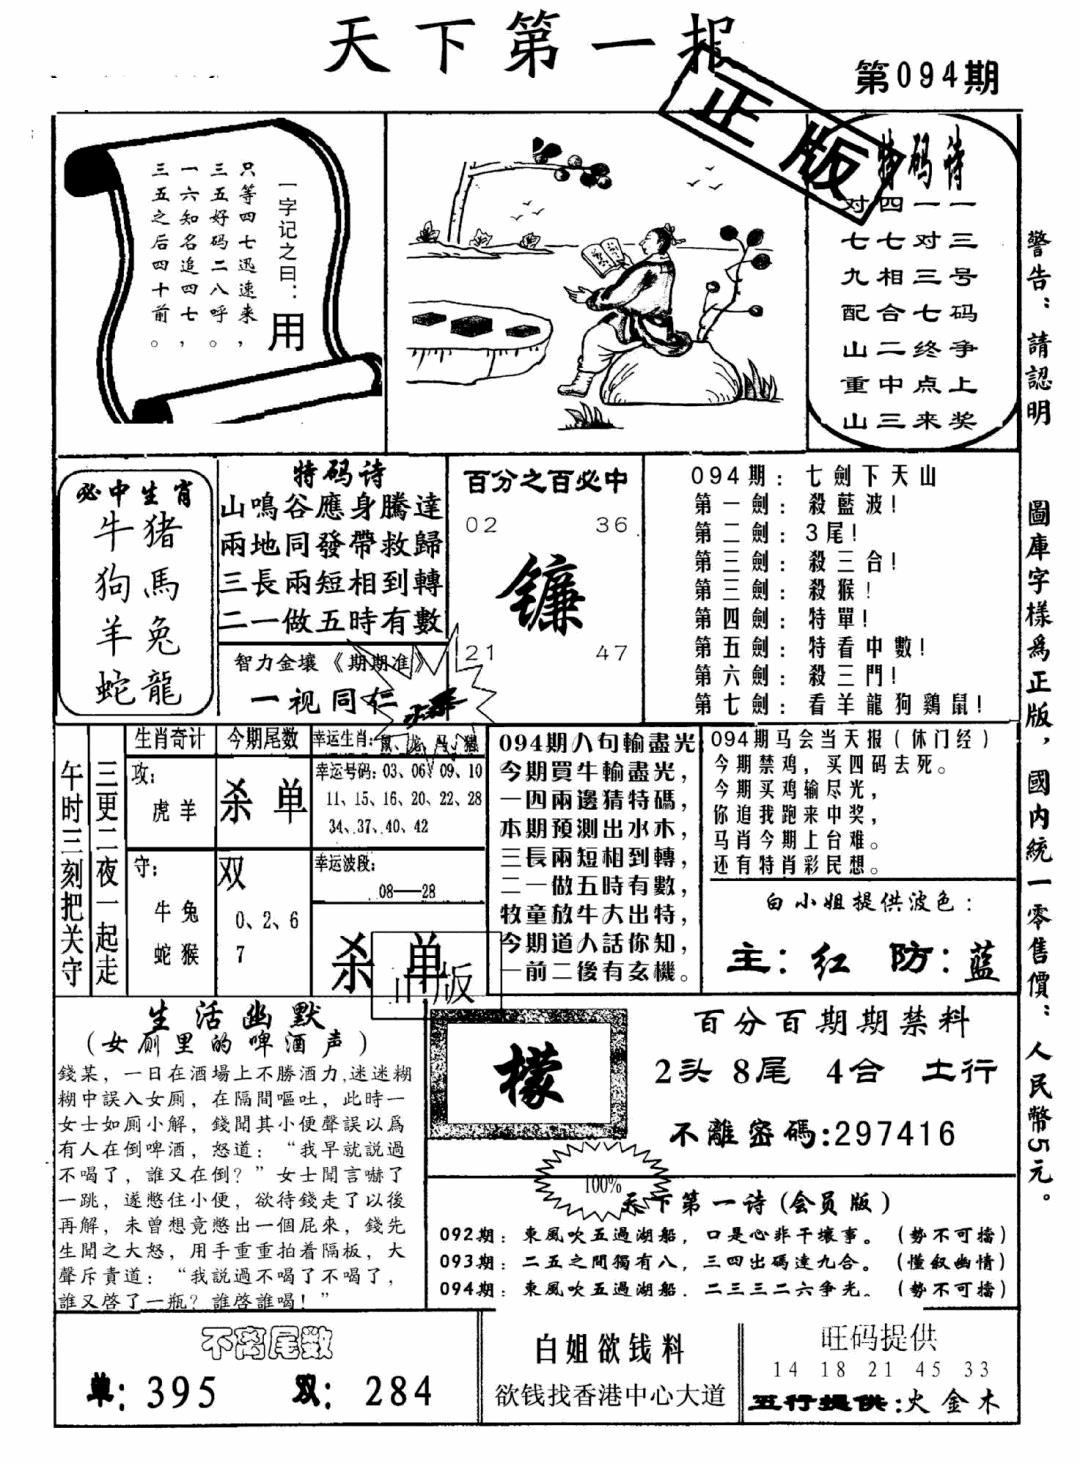 天下第一报
第094期
正版
一字记之曰：用
只等四七迅速来，
三五好码二八呼。
一六知名追四七，
三五之后四十前。
特码诗
对四一一
七七对三
九相三号
配合七码
山二终争
重中点上
山三来奖
警告：請認明
圖庫字樣為正版，國内統一零售價：人民幣5元。
必中生肖
牛猪
狗馬
羊兔
蛇龍
特码诗
山鳴谷應身騰達
兩地同發帶救歸
三長兩短相到轉
二一做五時有數
智力金壤《期期准》
一视同仁
百分之百必中
02 36
镰
21 47
094期：七劍下天山
第一劍：殺藍波！
第二劍：3尾！
第三劍：殺三合！
第三劍：殺猴！
第四劍：特單！
第五劍：特看中數！
第六劍：殺三門！
第七劍：看羊龍狗鷄鼠！
午时三刻把关守
三更二夜一起走
生肖奇计
攻：
虎羊
守：
牛兔
蛇猴
今期尾数
杀单
双
0、2、6
7
幸运生肖：鼠、龙、马、猴
幸运号码：03、06、09、10
11、15、16、20、22、28
34、37、40、42
幸运波段：
08——28
杀单
正版
094期八句輸盡光
今期買牛輸盡光，
一四兩邊猜特碼，
本期預測出水木，
三長兩短相到轉，
二一做五時有數，
牧童放牛大出特，
今期道人話你知，
一前二後有玄機。
094期马会当天报（休门经）
今期禁鸡，买四码去死。
今期买鸡输尽光，
你追我跑来中奖，
马肖今期上台难。
还有特肖彩民想。
白小姐提供波色：
主：红 防：蓝
生活幽默
(女厕里的啤酒声)
錢某，一日在酒場上不勝酒力，迷迷糊
糊中誤入女厕，在隔間嘔吐，此時一
女士如厕小解，錢聞其小便聲誤以爲
有人在倒啤酒，怒道：“我早就説過
不喝了，誰又在倒？”女士聞言嚇了
一跳，遂憋住小便，欲待錢走了以後
再解，未曾想竟憋出一個屁來，錢先
生聞之大怒，用手重重拍着隔板，大
聲斥責道：“我説過不喝了不喝了，
誰又啓了一瓶？誰啓誰喝！”
檬
百分百期期禁料
2头 8尾 4合 土行
不離密碼:297416
100%
天下第一诗(会员版)
092期：東風吹五過湖船，口是心非干壞事。（勢不可擋）
093期：二五之間獨有八，三四出碼達九合。（懂叙幽情）
094期：東風吹五過湖船．二三三二六争光。（勢不可擋）
不离尾数
单：395 双：284
白姐欲钱料
欲钱找香港中心大道
旺码提供
14 18 21 45 33
五行提供:火金木